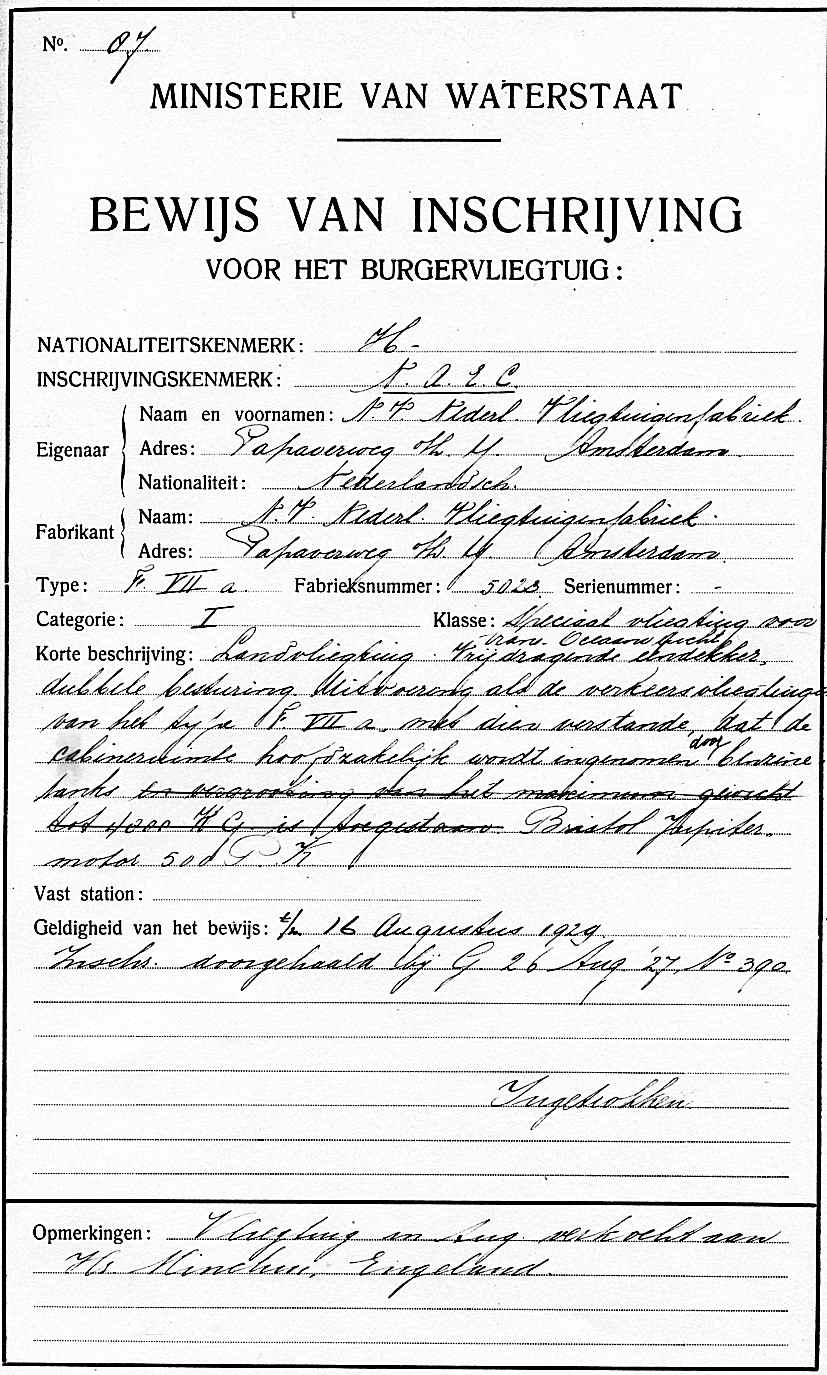 No. 87
MINISTERIE VAN WATERSTAAT
BEWIJS VAN INSCHRIJVING
VOOR HET BURGERVLIEGTUIG:
NATIONALITEITSKENMERK: H-
INSCHRIJVINGSKENMERK: N.A.E.C.
Eigenaar
Naam en voornamen: N.V. Nederl. Vliegtuigenfabriek.
Adres: Papaverweg o/h. Y. Amsterdam.
Nationaliteit: Nederlandsch.
Fabrikant
Naam: N.V. Nederl. Vliegtuigenfabriek.
Adres: Papaverweg o/h. Y. Amsterdam.
Type: F. VII a. Fabrieksnummer: 5023. Serienummer: -
Categorie: I Klasse: Speciaal vliegtuig voor
Trans. Oceaanvlucht
Korte beschrijving: Landvliegtuig. Vrijdragende eendekker,
dubbele besturing. Uitvoering als de verkeersvliegtuigen
van het type F. VII a. met dien verstande, dat de
cabineruimte hoofdzakelijk wordt ingenomen door benzine-
tanks en vergrooting van het maximum gewicht
tot 4000 K.G. is toegestaan. Bristol Jupiter-
motor 500 P.K.
Vast station:
Geldigheid van het bewijs: t/m 16 Augustus 1929.
Inschr. doorgehaald bij G. 26 Aug '27 No 390
Ingetrokken
Opmerkingen: Vliegtuig in Aug. verkocht aan
Hr Minchin, Engeland.